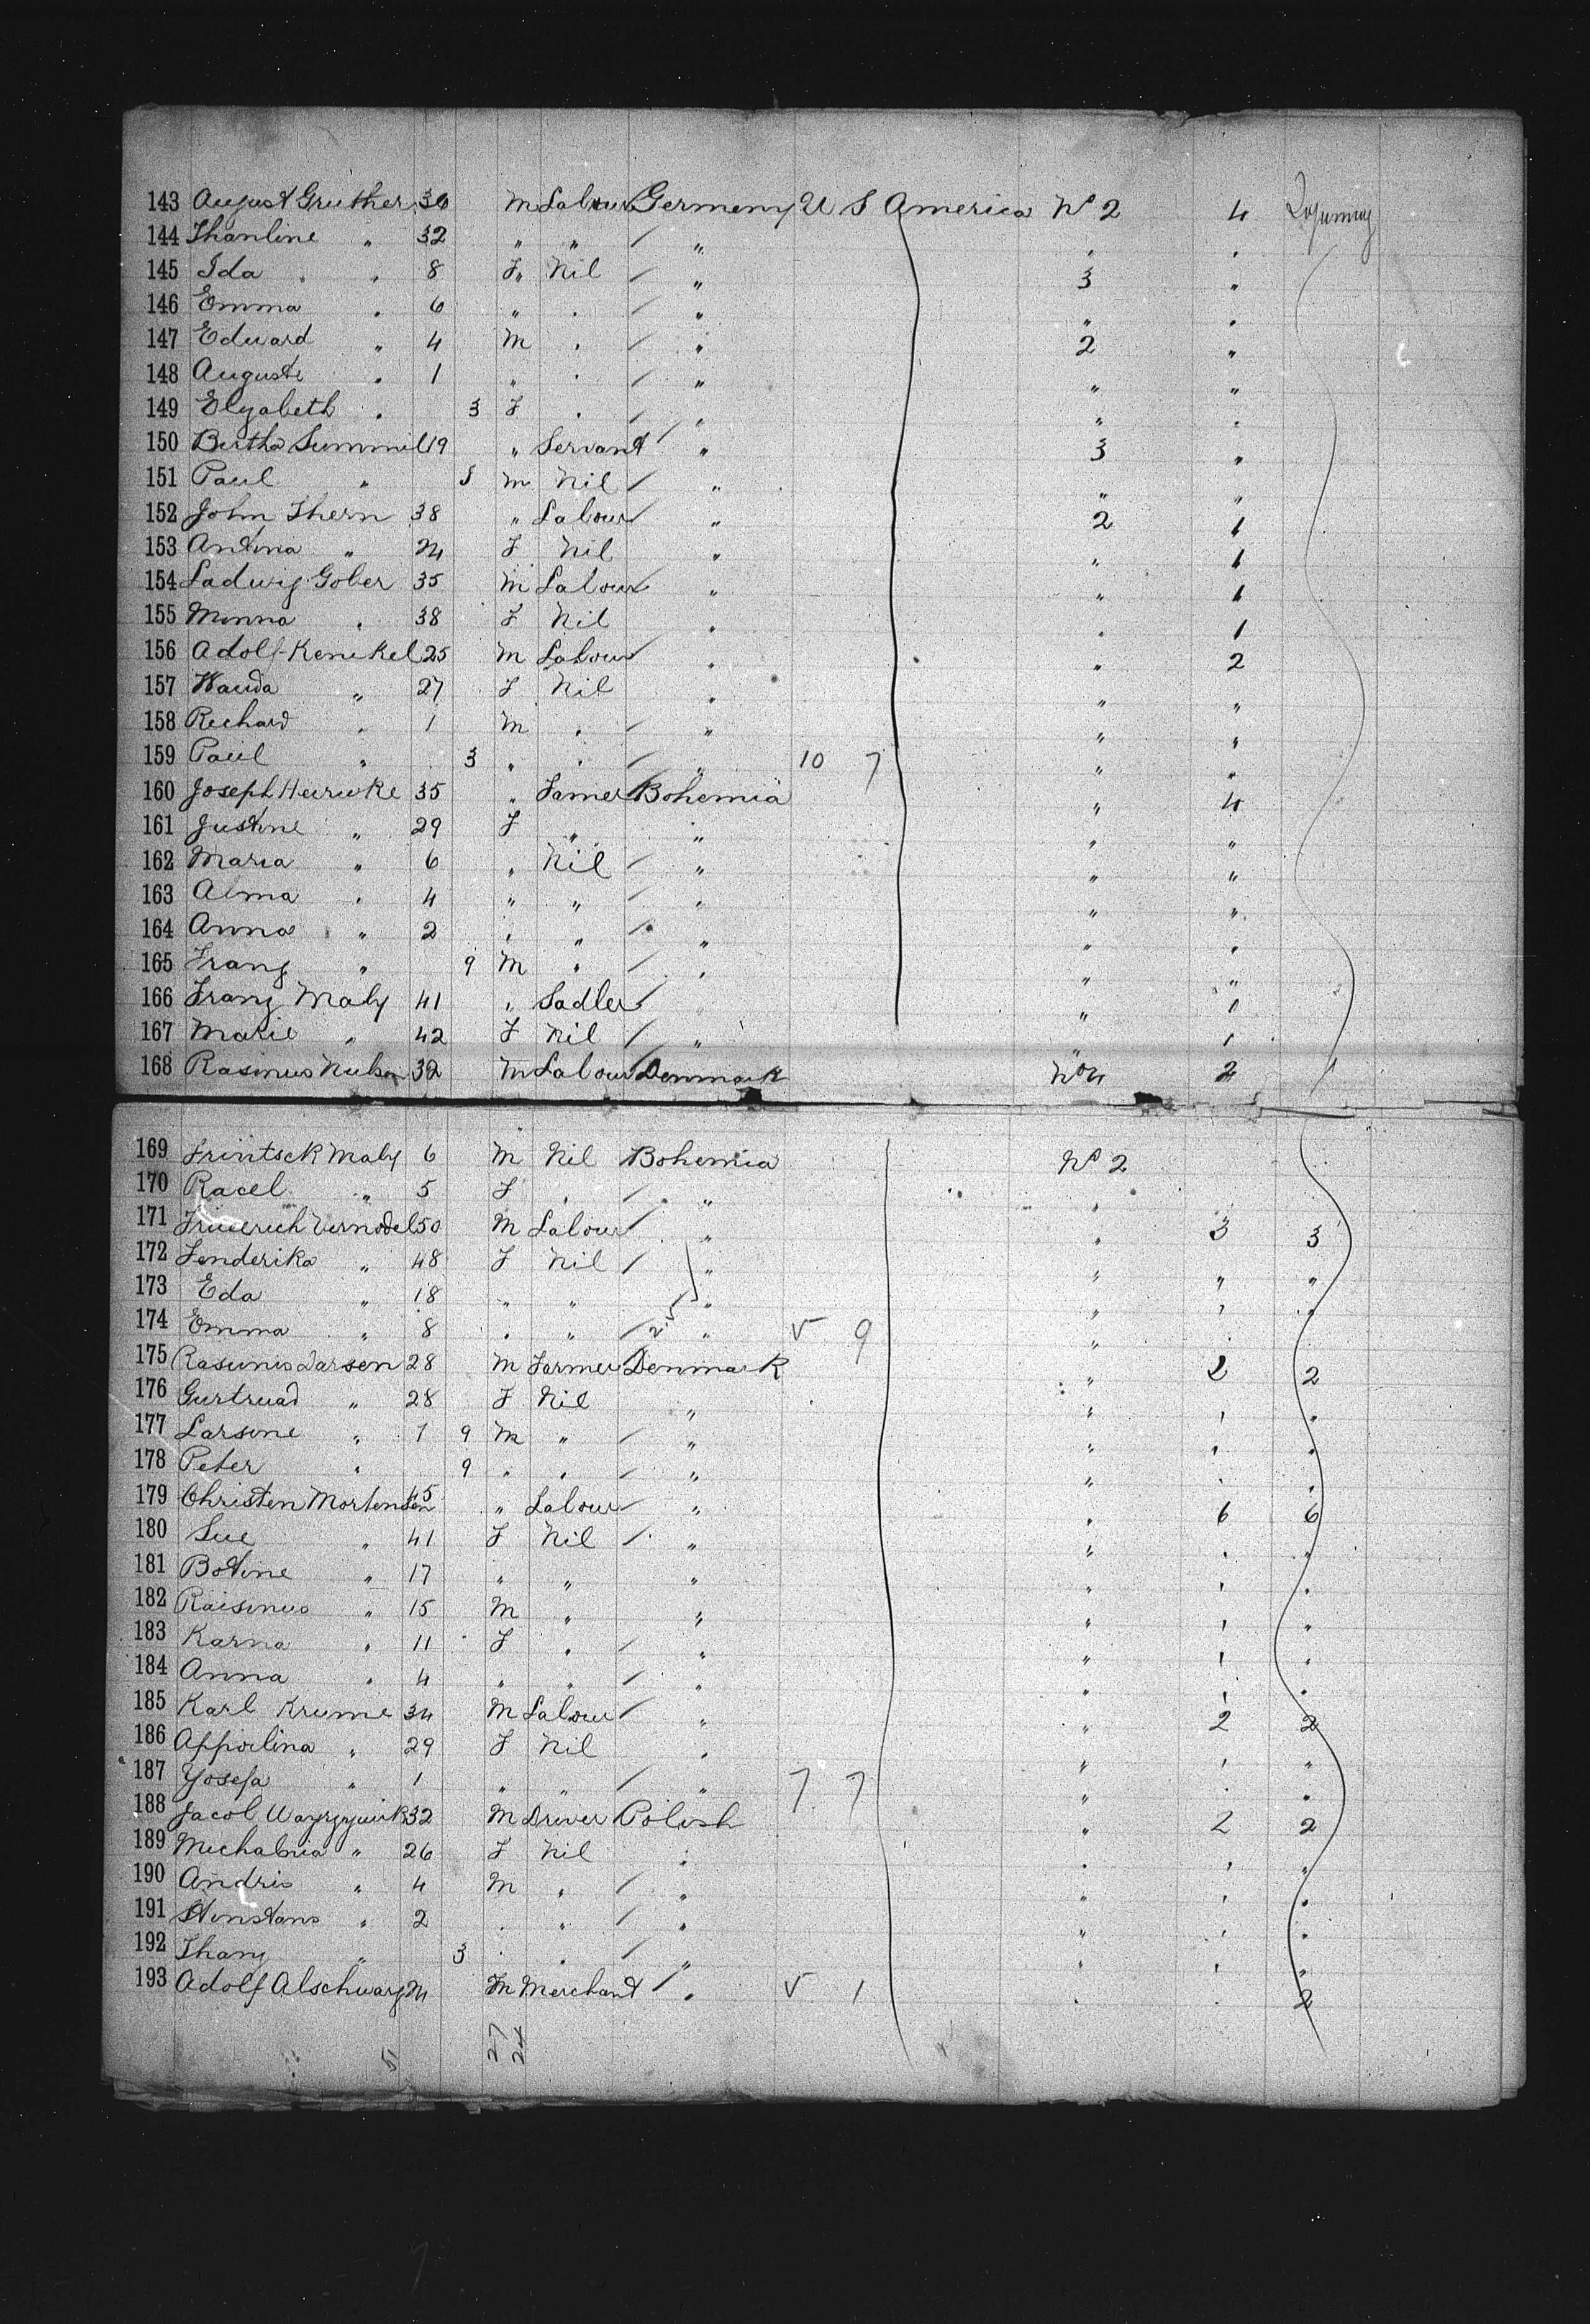 143 August Gruther 36 M Labour Germeny U S America No 2 4
144 Thanline " 32 " " / " " "
145 Ida " 8 F " Nil / " 3 "
146 Emma " 6 " " / " " "
147 Edward " 4 M " / " 2 "
148 Auguste " 1 " " / " " "
149 Elyabeth " 3 F " / " " "
150 Bertha Summil 19 " Servant / " 3 "
151 Paul " M Nil / " " "
152 John Thern 38 " Labour / " 2 1
153 Antina " 24 F Nil " " 1
154 Ladwig Gober 35 M Labour / " " 1
155 Minna " 38 F Nil " " 1
156 Adolf Kenekel 25 M Labour / " " 2
157 Wanda " 27 F Nil " " "
158 Rechard " 1 M " / " " "
159 Paul " 3 " " / " 10 7 " "
160 Joseph 35 " Famer Bohemia " 4
161 Justine " 29 F " " " "
162 Maria " 6 " Nil / " " "
163 Alma " 4 " " / " " "
164 Anna " 2 " " / " " "
165 Frang " 9 M " / " " "
166 Frang Maly 41 " Sadler / " 1
167 Marie " 42 F Nil / " " 1
168 Rasmus Nulson 32 M Labour Denmark No 4 2
169 Frintsck Maly 6 M Nil Bohemia No 2
170 Racel " 5 F " / " "
171 Vernodel 50 M Labour / " " 3 3
172 Fenderika " 48 F Nil / " " " "
173 Eda " 18 " " / " " " "
174 Emma " 8 " " / " 9 " "
175 Rasunis Larsen 28 M Farmer Denmark " 2 2
176 Gurtruad " 28 F Nil " " " "
177 Larsine " 1 9 M " / " " " "
178 Peter " 9 " " / " " " "
179 Christen Mortensen 45 " Labour / " " 6 6
180 Sue " 41 F Nil / " " " "
181 Botine " 17 " " " " " "
182 Raisinus " 15 M " " " " "
183 Karna " 11 F " / " " " "
184 Anna " 4 " " / " " " "
185 Karl Krume 34 M Labour / " " 2 2
186 Appoilina " 29 F Nil " " " "
187 Yosefa " 1 " " / " 7 7 " " "
188 Jacol 32 M Driver Polish " 2 2
189 Michalnia " 26 F Nil " " " "
190 Andris " 4 M " / " " " "
191 Stinstans " 2 " " / " " " "
192 Thany " 3 " " / " " " "
193 Adolf Alschwarg 24 M Merchant / " 1 " " 2
27
24
51